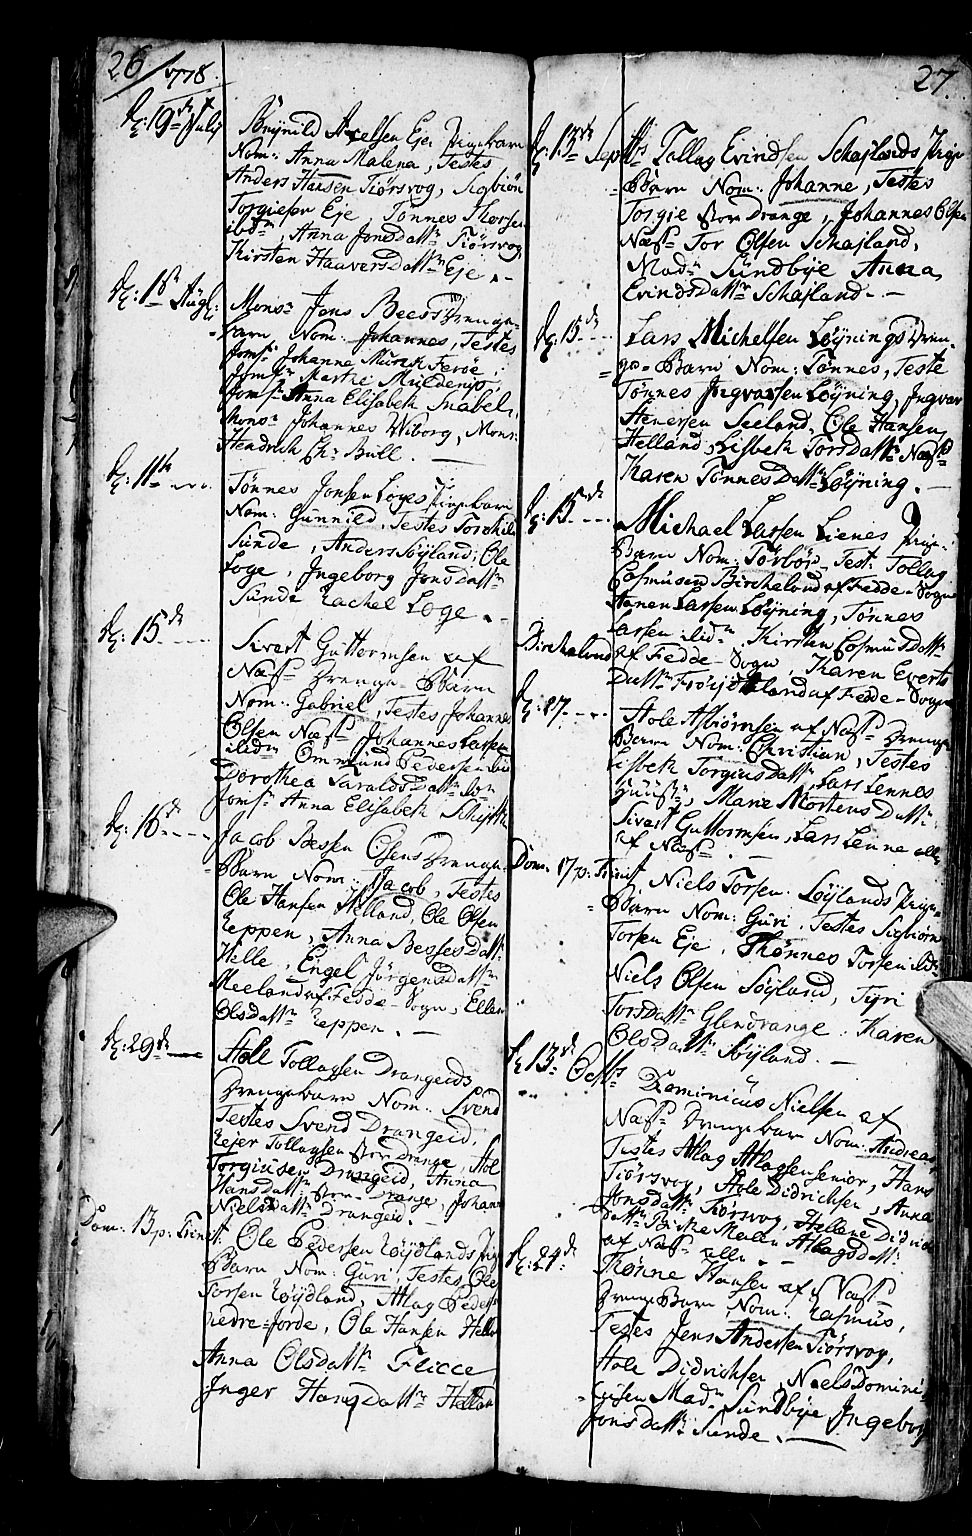 26 1778.
d: 19de July
Brynild Axelsen Eje Pigebarn
Nom: Anna Malena, Testes
Anders Hansen Tiörsvog, Sigbiön
Torgiesen Eje, Tönnes Thorsen
ibdm, Anna JonsDattr Tiörsvog
Kirsten HauversDattr Eje.
d: 1st Augt:
Monsr Jens Beess Drenge-
barn Nom: Johannes, Testes
Jomfr Johanne Munch Feröe,
Jomfr Marthe Mülderup,
Jomfr Anna Elisabeth Snabel,
Monsr Johannes Wiborg, Monsr:
Hendrich Ch: Bull.
d: 11te
Tönnes Jonsen Loges Pigebarn
Nom: Gunnild, Testes Torchild
Sünde, Anders Söyland, Ole
Loge, Ingeborg JonsDattr
Sünde Rachel Loge.
d: 15de
Sivert Guttormsen af
Næss Drenge-Barn
Nom: Gabriel, Testes Johannes
Olsen Næss Johannes Larsen
ibidm Ommund Pedersen
Dorothea TaraldsDattr
Jomfr Anna Elisabeth Schiötth
d: 16de
Jacob Bessen Osens Drenge-
Barn Nom: Jacob, Testes
Ole Hansen Helland, Ole Olsen
Reppen, Anna BessesDattr
Helle, Engel JörgensDattr
Meeland af Fedde-Sogn, Ellen
OlsDattr Reppen.
d: 29de
Hole Tollagsen Drangeids
Drengebarn Nom: Svend
Testes Svend Drangeid,
Rejer Tollagsen Stor Drange, Hole
Torgiusen Drangeid, Anna
HansDattr Stor-Drange, Johanne
NielsDattr Drangeid.
Dom: 13 p: Trinit:
Ole Pedersen Röydlands Pige
Barn Nom: Güri, Testes, Ole
Torsen Röydland, Atlag Peders
nedre-Jorde, Ole Hansen Helle
Anna OlsDattr Flicce
Inger HansDattr Hellan
27
d: 13de Septbr
Tollag Evindsen Schajlands Pige
Barn Nom: Johanne, Testes
Torgie Stor Drange, Johannes Olsen
Næss Tor Olsen Schajland,
Madm Sundbye Anna
EvindsDattr Schajland.
d: 15de
Lars Michelsen Löynings Dren-
ge-Barn Nom: Tönnes, Teste
Tönnes Ingvarsen Löyning, Ingvar
Stenersen Seeland, Ole Hansen
Helland, Lisbeth TorsDattr Næss
Karen TönnesDattr Löyning.
d: 15de
Michael Larsen Lienes Pige-
Barn Nom: Torbör, Test: Tollag
Osmunsen Birchelund af Fedde-Sogn
Stener Larsen Löyning, Tönnes
Larsen ibidm Kirsten OsmundsDattr
Birchelund af Fedde-Sogn Karen Everts
Dattr Fröyseland af Fedde-Sogn
d: 27
Hole Asbiörnsen af Næss Drenge
Barn Nom: Christian, Testes
Lisbeth TorgiusDattr, Lars Lennes
Huustr, Marie MortensDattr
Sivert Guttormsen, Lars Lenne alle
af Næss.
Dom: 17 p: Trinit
Niels Torsen Söylands Pige-
Barn Nom: Güri, Testes Sigbiörn
Torsen Eje, Thönnes Torsen ibd:
Niels Olsen Söyland, Tyri
TorsDattr Glendrange, Karen
OlsDattr Söyland.
d: 13de Octbr
Dominicus Nielsen af
Næss Drengebarn Nom: Andreas
Testes Atlag Atlagsen Senior, Hans
Tiörsvog, Hole Didrichsen, Anna
JonsDattr Tiörsvog, Hellene Didrichs
Dattr Birthe Malen AtlagsDattr
af Næss alle.
d: 24de
Thönne Hansen af Næss
Drengebarn Nom: Rasmus,
Testes Jens Andersen Tiörsvog,
Hole Didrichsen, Niels Domini-
cusen Madm Sundbye Ingeborg
JonsDattr Sünde.